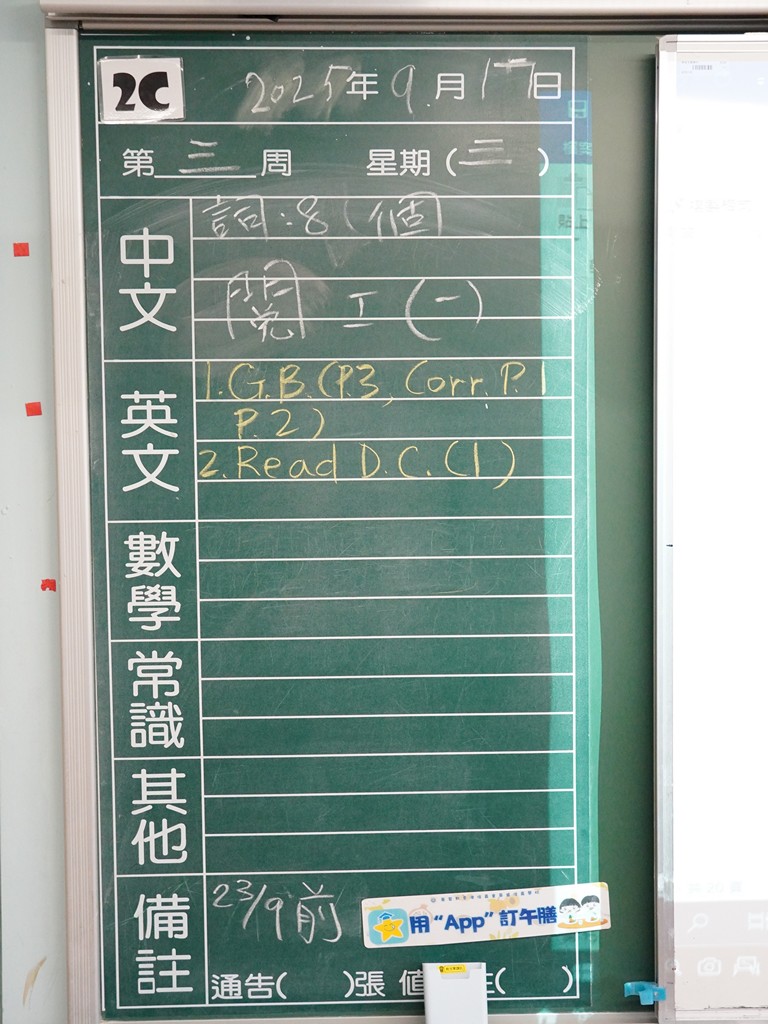 2C
2025年9月17日
第三周 星期(三)
中文
詞:8(個
閱 工(一)
英文
1.G.B.(P.3, Corr. P.1
P.2)
2.Read D.C.(1)
數學
常識
其他
備註
23/9前
用“App”訂午膳
通告( )張 值 ( )